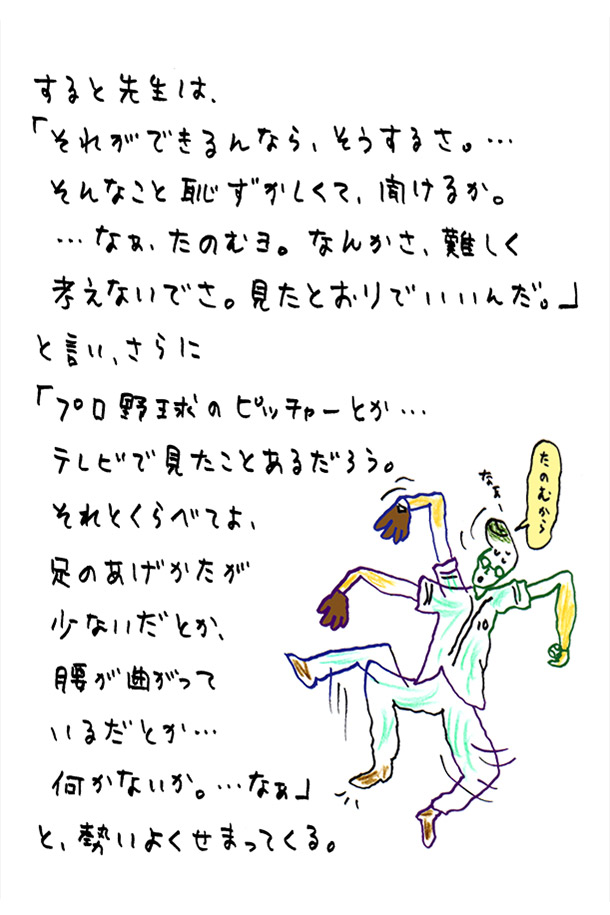 すると先生は、
「それができるんなら、そうするさ。…
そんなこと恥ずかしくて、聞けるか。
…なぁ、たのむヨ。なんかさ、難しく
考えないでさ。見たとおりでいいんだ。」
と言い、さらに
「プロ野球のピッチャーとか…
テレビで見たことあるだろう。
それとくらべてよ、
足のあげかたが
少ないだとか、
腰が曲がって
いるだとか…
何かないか。…なぁ」
と、勢いよくせまってくる。
たのむから
なぁ、
10